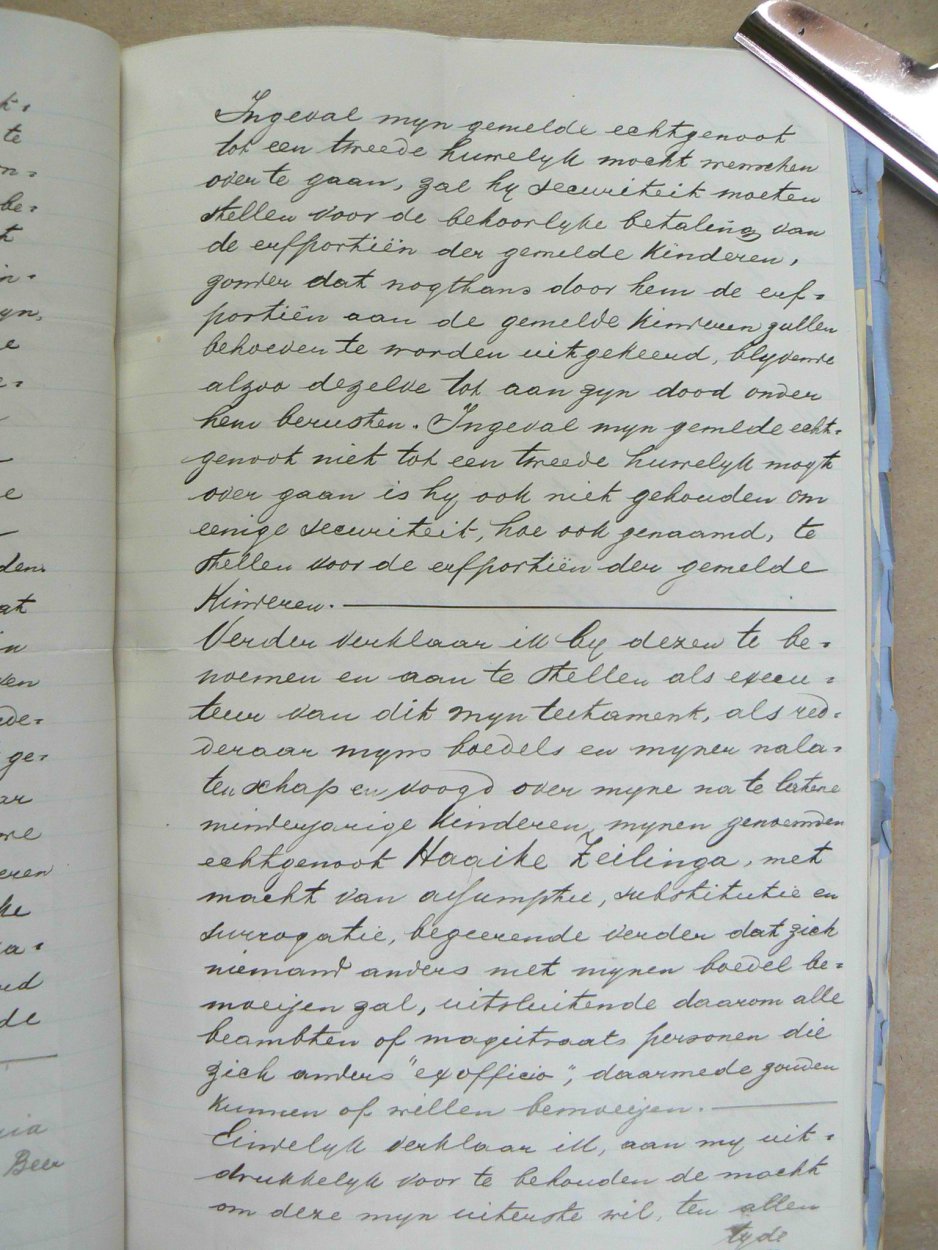 k.
te
n=
be=
t
in=
yn,
e
e=
e
den
at
n
ven
de=
ge=
ar
we
eren
ke
a=
rd
de
ia
Beer
Ingeval myn gemelde echtgenoot
tot een tweede huwelyk mocht wenschen
over te gaan, zal hy securiteit moeten
stellen voor de behoorlyke betaling van
de erfportiën der gemelde Kinderen,
zonder dat nogthans door hem de erf=
portiën aan de gemelde Kinderen zullen
behoeven te worden uitgekeerd, blyvende
alzoo dezelve tot aan zyn dood onder
hem berusten. Ingeval myn gemelde echt=
genoot niet tot een tweede huwelyk mogt
over gaan is hy ook niet gehouden om
eenige securiteit, hoe ook genaamd, te
stellen voor de erfportiën der gemelde
Kinderen.
Verder verklaar ik by dezen te be=
noemen en aan te stellen als execu=
teur van dit myn testament, als red=
deraar myns boedels en myner nala=
tenschap en voogd over myne na te latene
minderjarige Kinderen, mynen genoemden
echtgenoot Haaike Zeilinga, met
macht van assumptie, substitutie en
surrogatie, begeerende verder dat zich
niemand anders met mynen boedel be=
moeijen zal, uitsluitende daarom alle
beambten of magistraats personen die
zich anders "ex officio", daarmede zouden
kunnen of willen bemoeijen.
Eindelyk verklaar ik, aan my uit=
drukkelyk voor te behouden de macht
om deze myn uiterste wil, ten allen
tyde